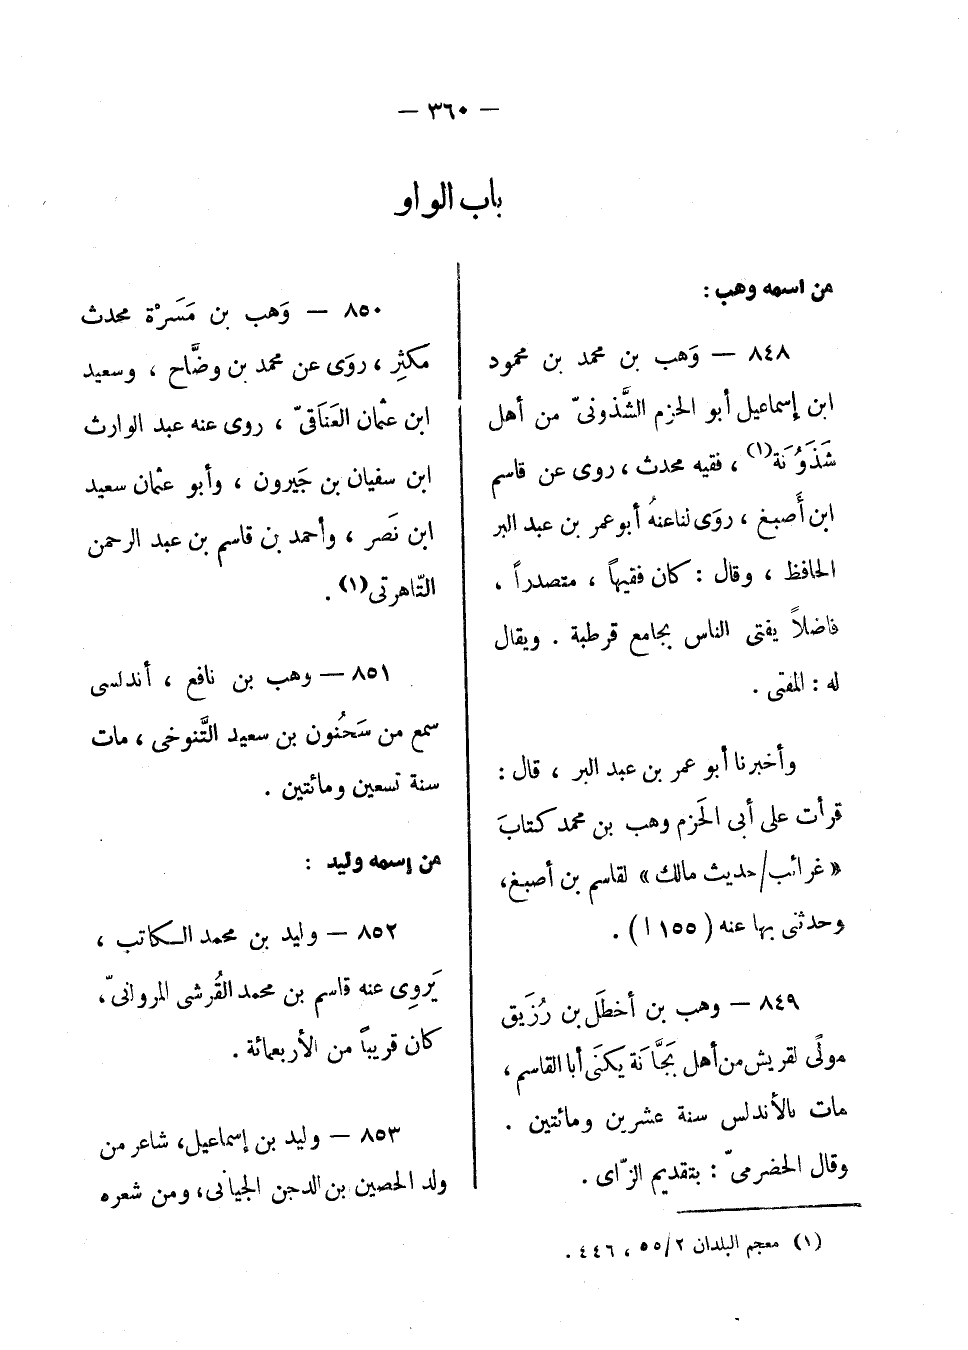 — ٣٦٠ —
باب الواو
من اسمه وهب :
٨٤٨ — وَهب بن محمد بن محمود
ابن إسماعيل أبو الحزم الشَّذونىّ من أهل
شَذَوُنَة(١) ، فقيه محدث ، روى عن قاسم
ابن أَصبغ ، روَى لنا عنهُ أبو عمر بن عبد البر
الحافظ ، وقال : كان فقيهاً ، متصدراً ،
فاضلاً يفتى الناس بجامع قرطبة . ويقال
له : المفتى .
وأخبرنا أبو عمر بن عبد البر ، قال :
قرأت على أبى الحَزم وهب بن محمد كتابَ
« غرائب/حديث مالك » لقاسم بن أصبغ،
وحدثنى بها عنه ( ١٥٥ ا ) .
٨٤٩ — وهب بن أخطَل بن رُزَيق
مولًى لقريش من أهل بَجَّانة يكنَى أبا القاسم ،
مات بالأندلس سنة عشرين ومائتين .
وقال الحضرمىّ : بتقديم الزّاى .
(١) معجم البلدان ٥٥/٢ ، ٤٤٦ .
٨٥٠ — وَهب بن مَسَرْة محدث
مكثِر ، روَى عن محمد بن وضَّاح ، وسعيد
ابن عثمان العَنَاقىّ ، روى عنه عبد الوارث
ابن سفيان بن جَيرون ، وأبو عثمان سعيد
ابن نَصر ، وأحمد بن قاسم بن عبد الرحمن
التّاهرتى(١) .
٨٥١ — وهب بن نافع ، أندلسى
سمع من سَحُنون بن سعيد التَّنوخى ، مات
سنة تسعين ومائتين .
من إسمه وليد :
٨٥٢ — وليد بن محمد الكاتب ،
يَروِى عنه قاسم بن محمد القُرشى المروانىّ،
كان قريباً من الأربعمائة .
٨٥٣ — وليد بن إسماعيل، شاعر من
ولد الحصين بن الدجن الجيانى، ومن شعره